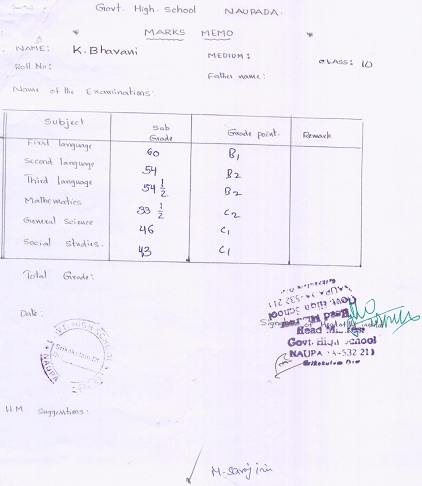 Govt. High. School NAUPADA.
MARKS MEMO
NAME: K. Bhavani MEDIUM: CLASS: 10
Roll No: Father name:
Name of the Examinations:
Subject Sub Grade Grade point. Remark
First language 60 B1
Second language 54 B2
Third language 54 1/2 B2
Mathematics 33 1/2 C2
General Science 46 C1
Social Studies. 43 C1
Total Grade:
Date:
Signature of Head of
Govt. High School
NAUPADA-532 211
Srikakulam Dist
HIGH SCHOOL
Srikakulam Dt
NAUPA
H.M Suggestions: